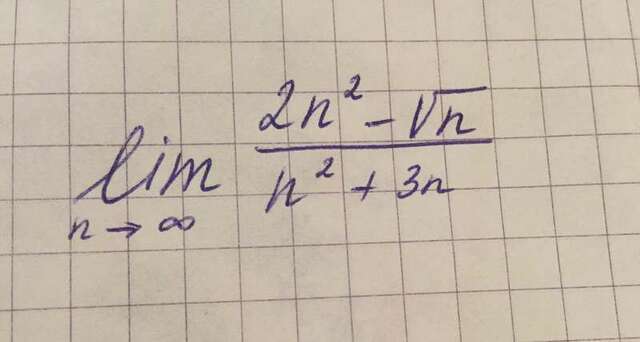 lim 2n² - √n
n² + 3n
n → ∞